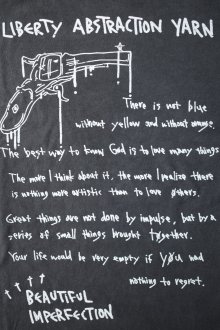 LIBERTY ABSTRACTION YARN
There is not blue
without yellow and without orange.
The best way to know God is to love many things
The more I think about it, the more I realize there
is nothing more artistic than to love others.
Great things are not done by impulse, but by a
series of small things brought together.
Your life would be very empty if you had
nothing to regret.
BEAUTIFUL
IMPERFECTION